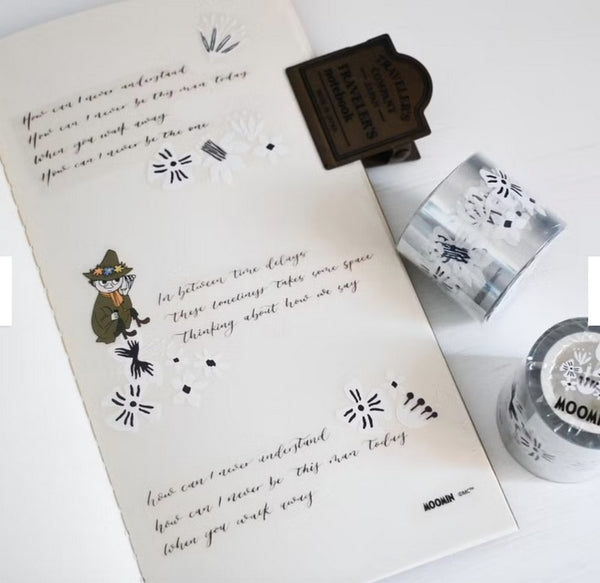 How can I never understand
How can I never be this man today
When you walk away
How can I never be the one
In between time delays
These loneliness takes some space
thinking about how we say
how can I never understand
how can I never be this man today
When you walk away
MOOMIN ©MC™
TRAVELER'S
COMPANY
JAPAN
TRAVELER'S
notebook
MOOMI